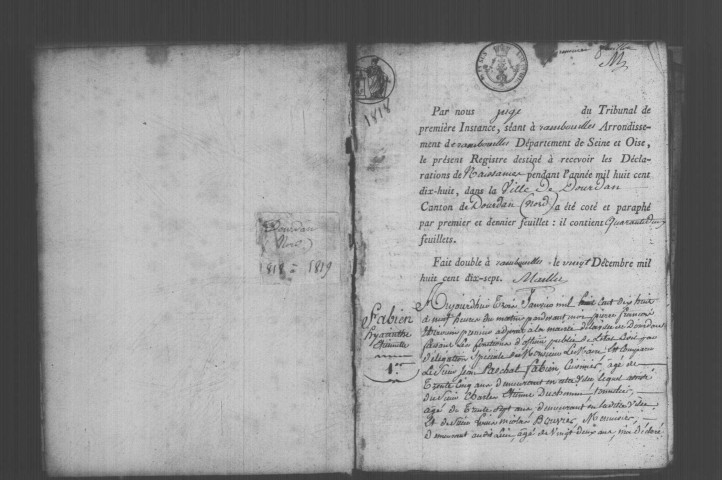 Dourdan
(Nord)
1818 = 1819
1818
Par nous juge du Tribunal de
première Instance, séant à rambouillet Arrondisse-
ment de rambouillet Département de Seine et Oise,
le présent Registre destiné à recevoir les Décla-
rations de Naissances pendant l'année mil huit cent
dix-huit, dans la Ville de Dourdan
Canton de Dourdan (nord) a été coté et paraphé
par premier et dernier feuillet : il contient Quarante
feuillets.
Fait double à rambouillet le vingt Décembre mil
huit cent dix-sept.
Fabien
hyacinthe
1er
Aujourdhui trois Janvier mil huit cent dix huit
à neuf heures du matin pardevant moi pierre françois
premier adjoint à la mairie de Dourdan
faisant les fonctions d'officier public de l'état Civil par
délégation Spéciale de Monsieur Le Maire Est comparu
Le Sieur Jean Paschal Fabien, Cuisinier, âgé de
trente cinq ans demeurant en cette ville lequel assisté
du Sieur Charles Etienne tonnelier,
âgé de trente sept ans demeurant en ladite Ville
Et du Sieur Louis Nicolas Bouvier, Menuisier,
demeurant audit Lieu, âgé de Vingt deux ans, m'a déclaré